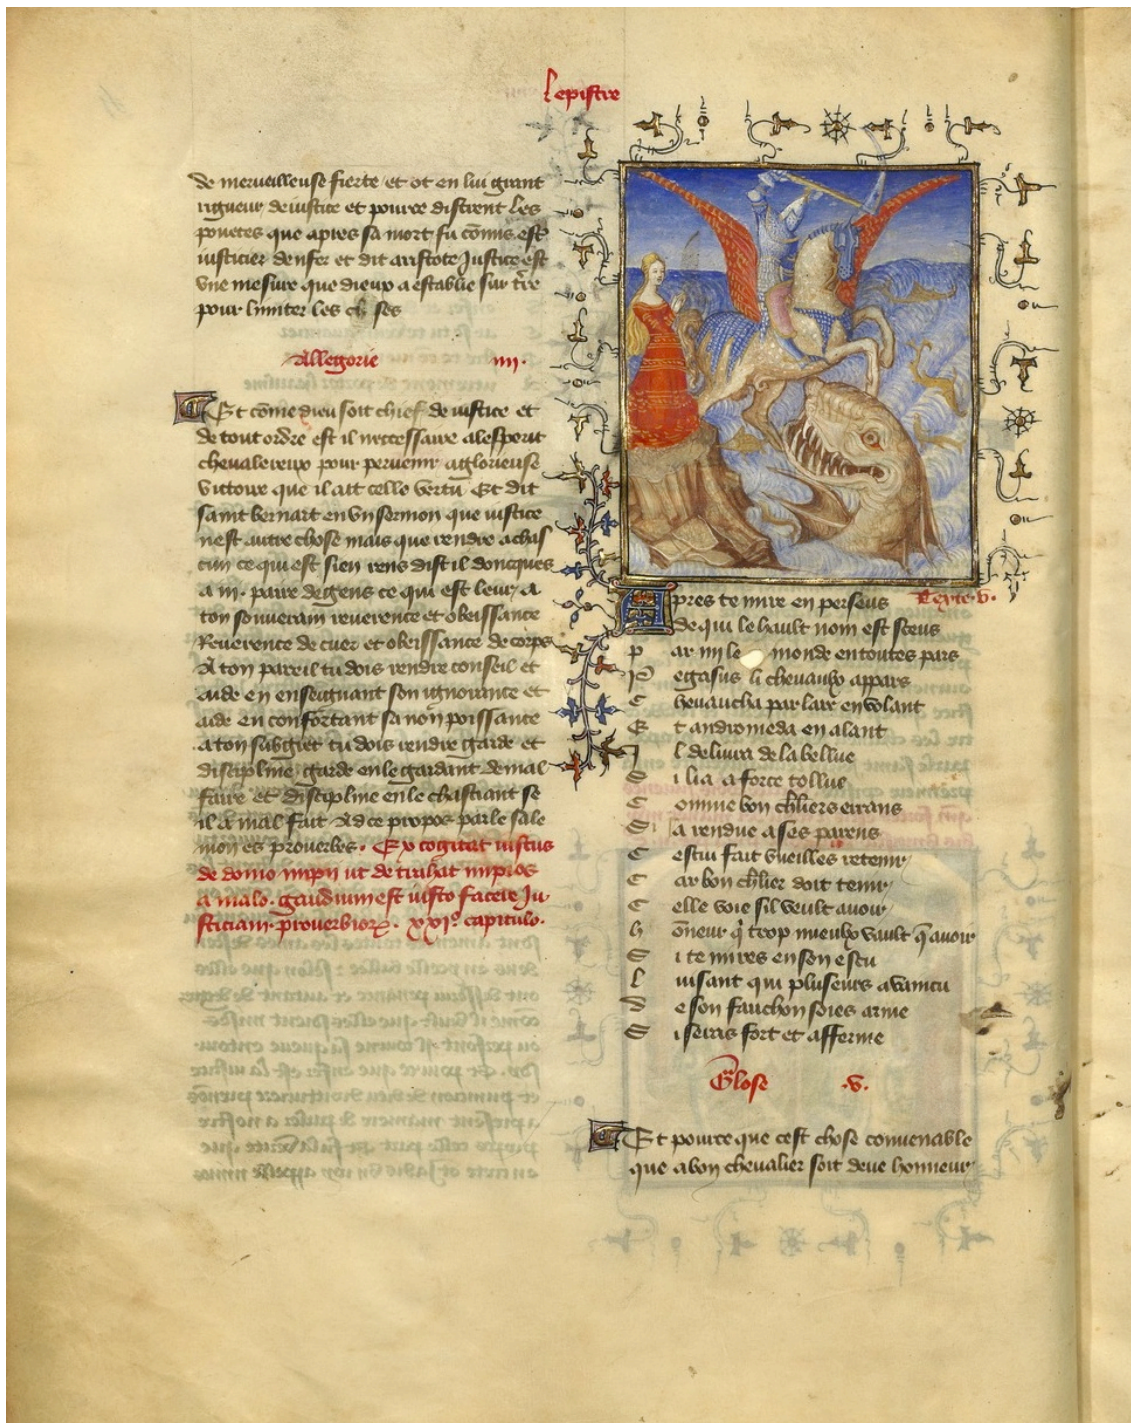 Lepistre
de merueilleuse fierte et ot en lui grant
rigueur de iustice et pource distrent les
pouetes que apres sa mort fu cōmis est̄
iusticier denfer et dit aristote Justice est
vne mesure que dieux a establie sur t̄re
pour limiter les ch ses
Allegorie iiii.
Et cōme dieu soit chief de iustice et
de tout ordre est il neccessaire alesperit
cheualereux pour peruenir aglorieuse
victoire que il ait celle vertu Et dit
saint bernart en vn sermon que iustice
nest autre chose mais que rendre achas
cun ce qui est sien rens dist il doncques
a iii. paire de gens ce qui est leur, a
ton souuerain reuerence et obeissance
Reuerence de cuer et obeissance de corps
A ton pareil tu dois rendre conseil et
aide en enseignant son ignorance et
aide en confortant sa non poissance
a ton subgiet tu dois rendre garde et
discipline, garde en le gardant de mal
faire et discipline en le chastiant se
il a mal fait Ad ce propos parle sale
mon es prouerbes. Excogitat iustus
de domo impii ut detrahat impios
a malo. gaudium est iusto facere Ju
sticiam. prouerbiorꝝ. xxi.º capitulo.
Apres te mire en perseus Texte .v.
de qui le hault nom est sceus
par mi le monde en toutes pars
Pegasus li cheuaulx appars
Cheuaucha par lair en volant
Et andromeda en alant
Il deliura de la bellue
Si lia a force tollue
Comme bon chl̄iers errans
Sa rendue a ses parens
Cestui fait vueilles retenir
Car bon chl̄ier doit tenir
Celle voie sil veult auoir
hōneur q̄ trop mieulx vault q̄ auoir
Si te mires en son escu
Luisant qui pluseurs a vaincu
De son fauchon soies arme
Si seras fort et afferme
Glose .v.
Et pource que cest chose conuenable
que a bon cheualier soit deue honneur